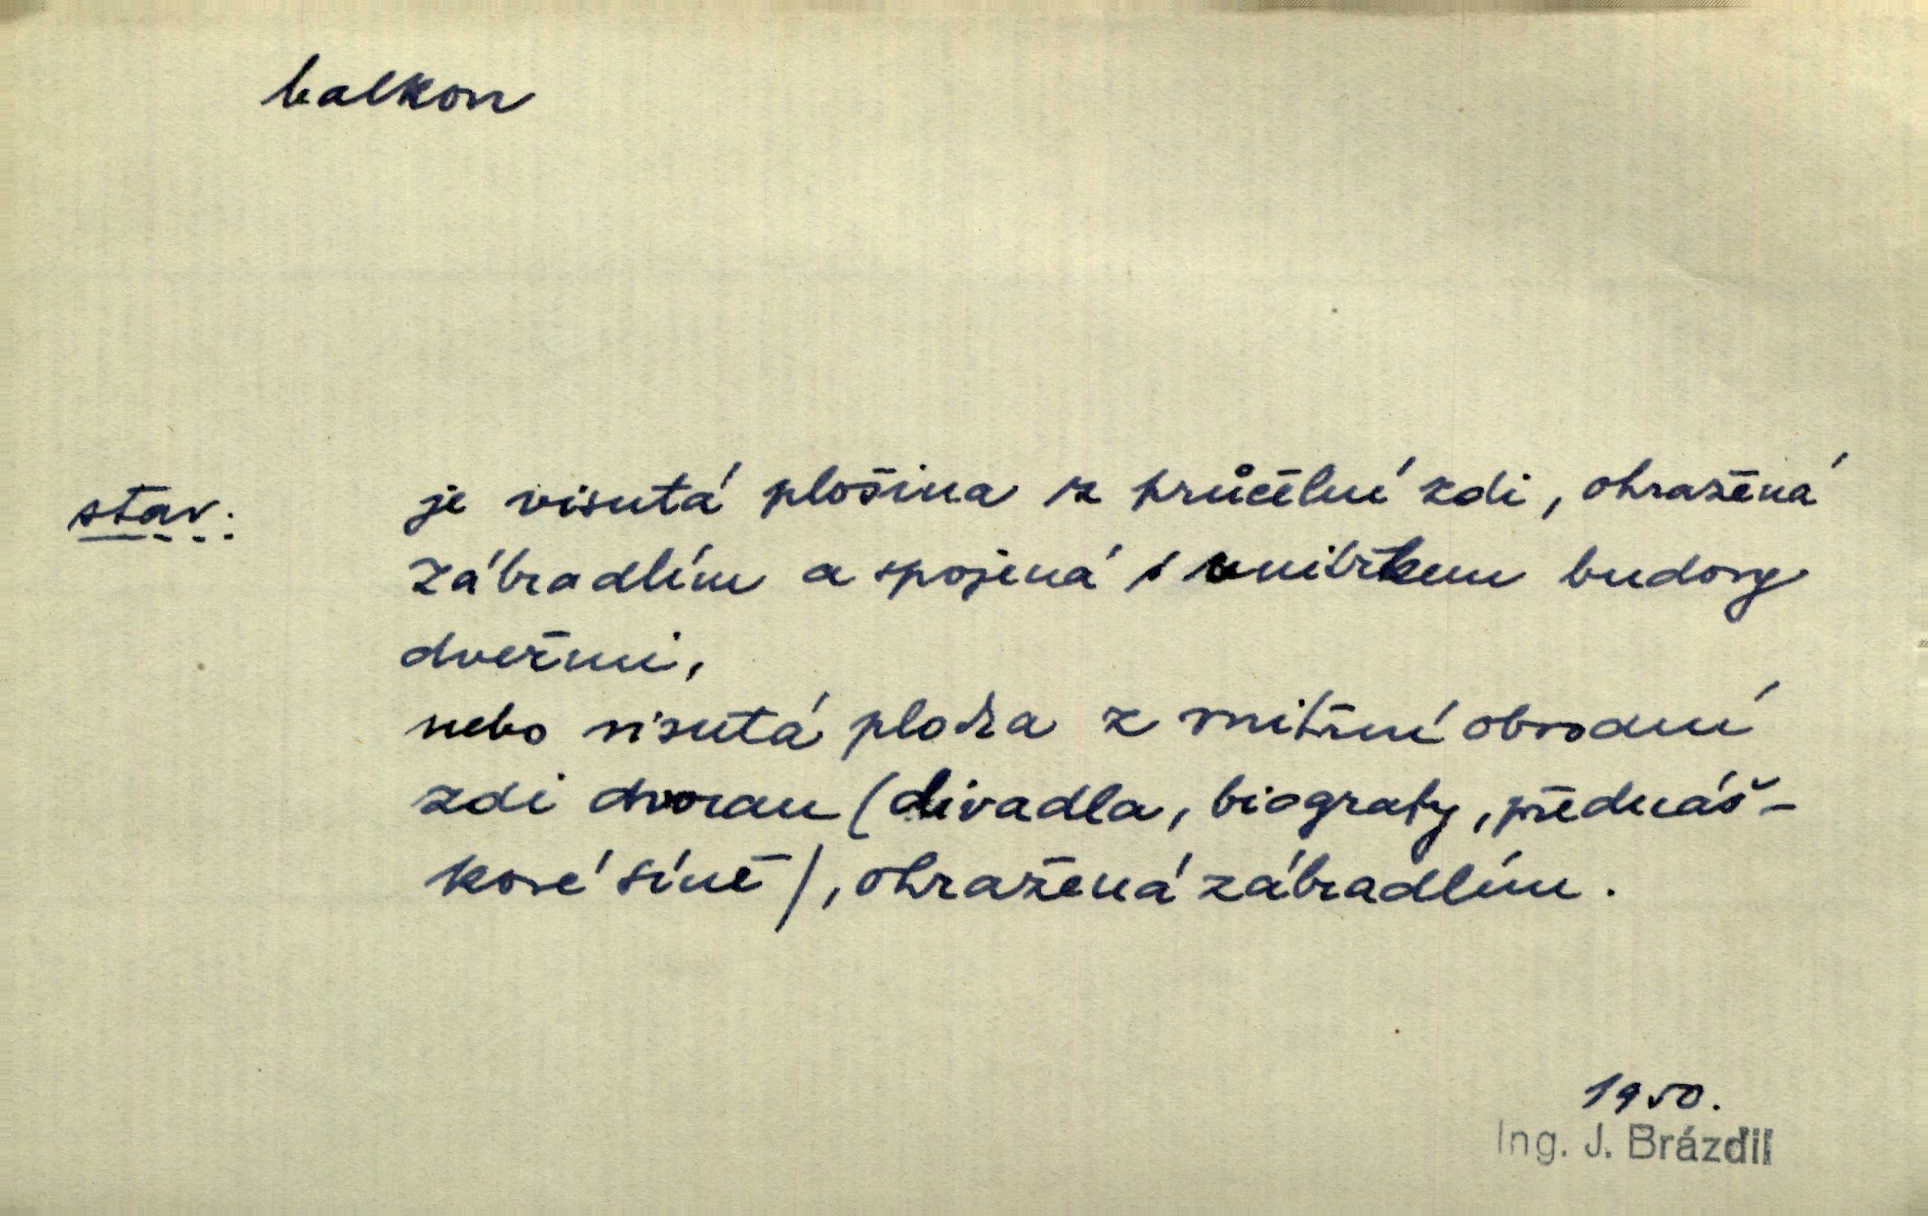 balkon
stav. je visutá plošina z průčelní zdi, ohražená
zábradlím a spojená s vnitřkem budovy
dveřmi,
nebo visutá plocha z vnitřní obvodní
zdi dvoran (divadla, biografy, přednáš-
kové síně), ohražená zábradlím.
1950.
Ing. J. Brázdil